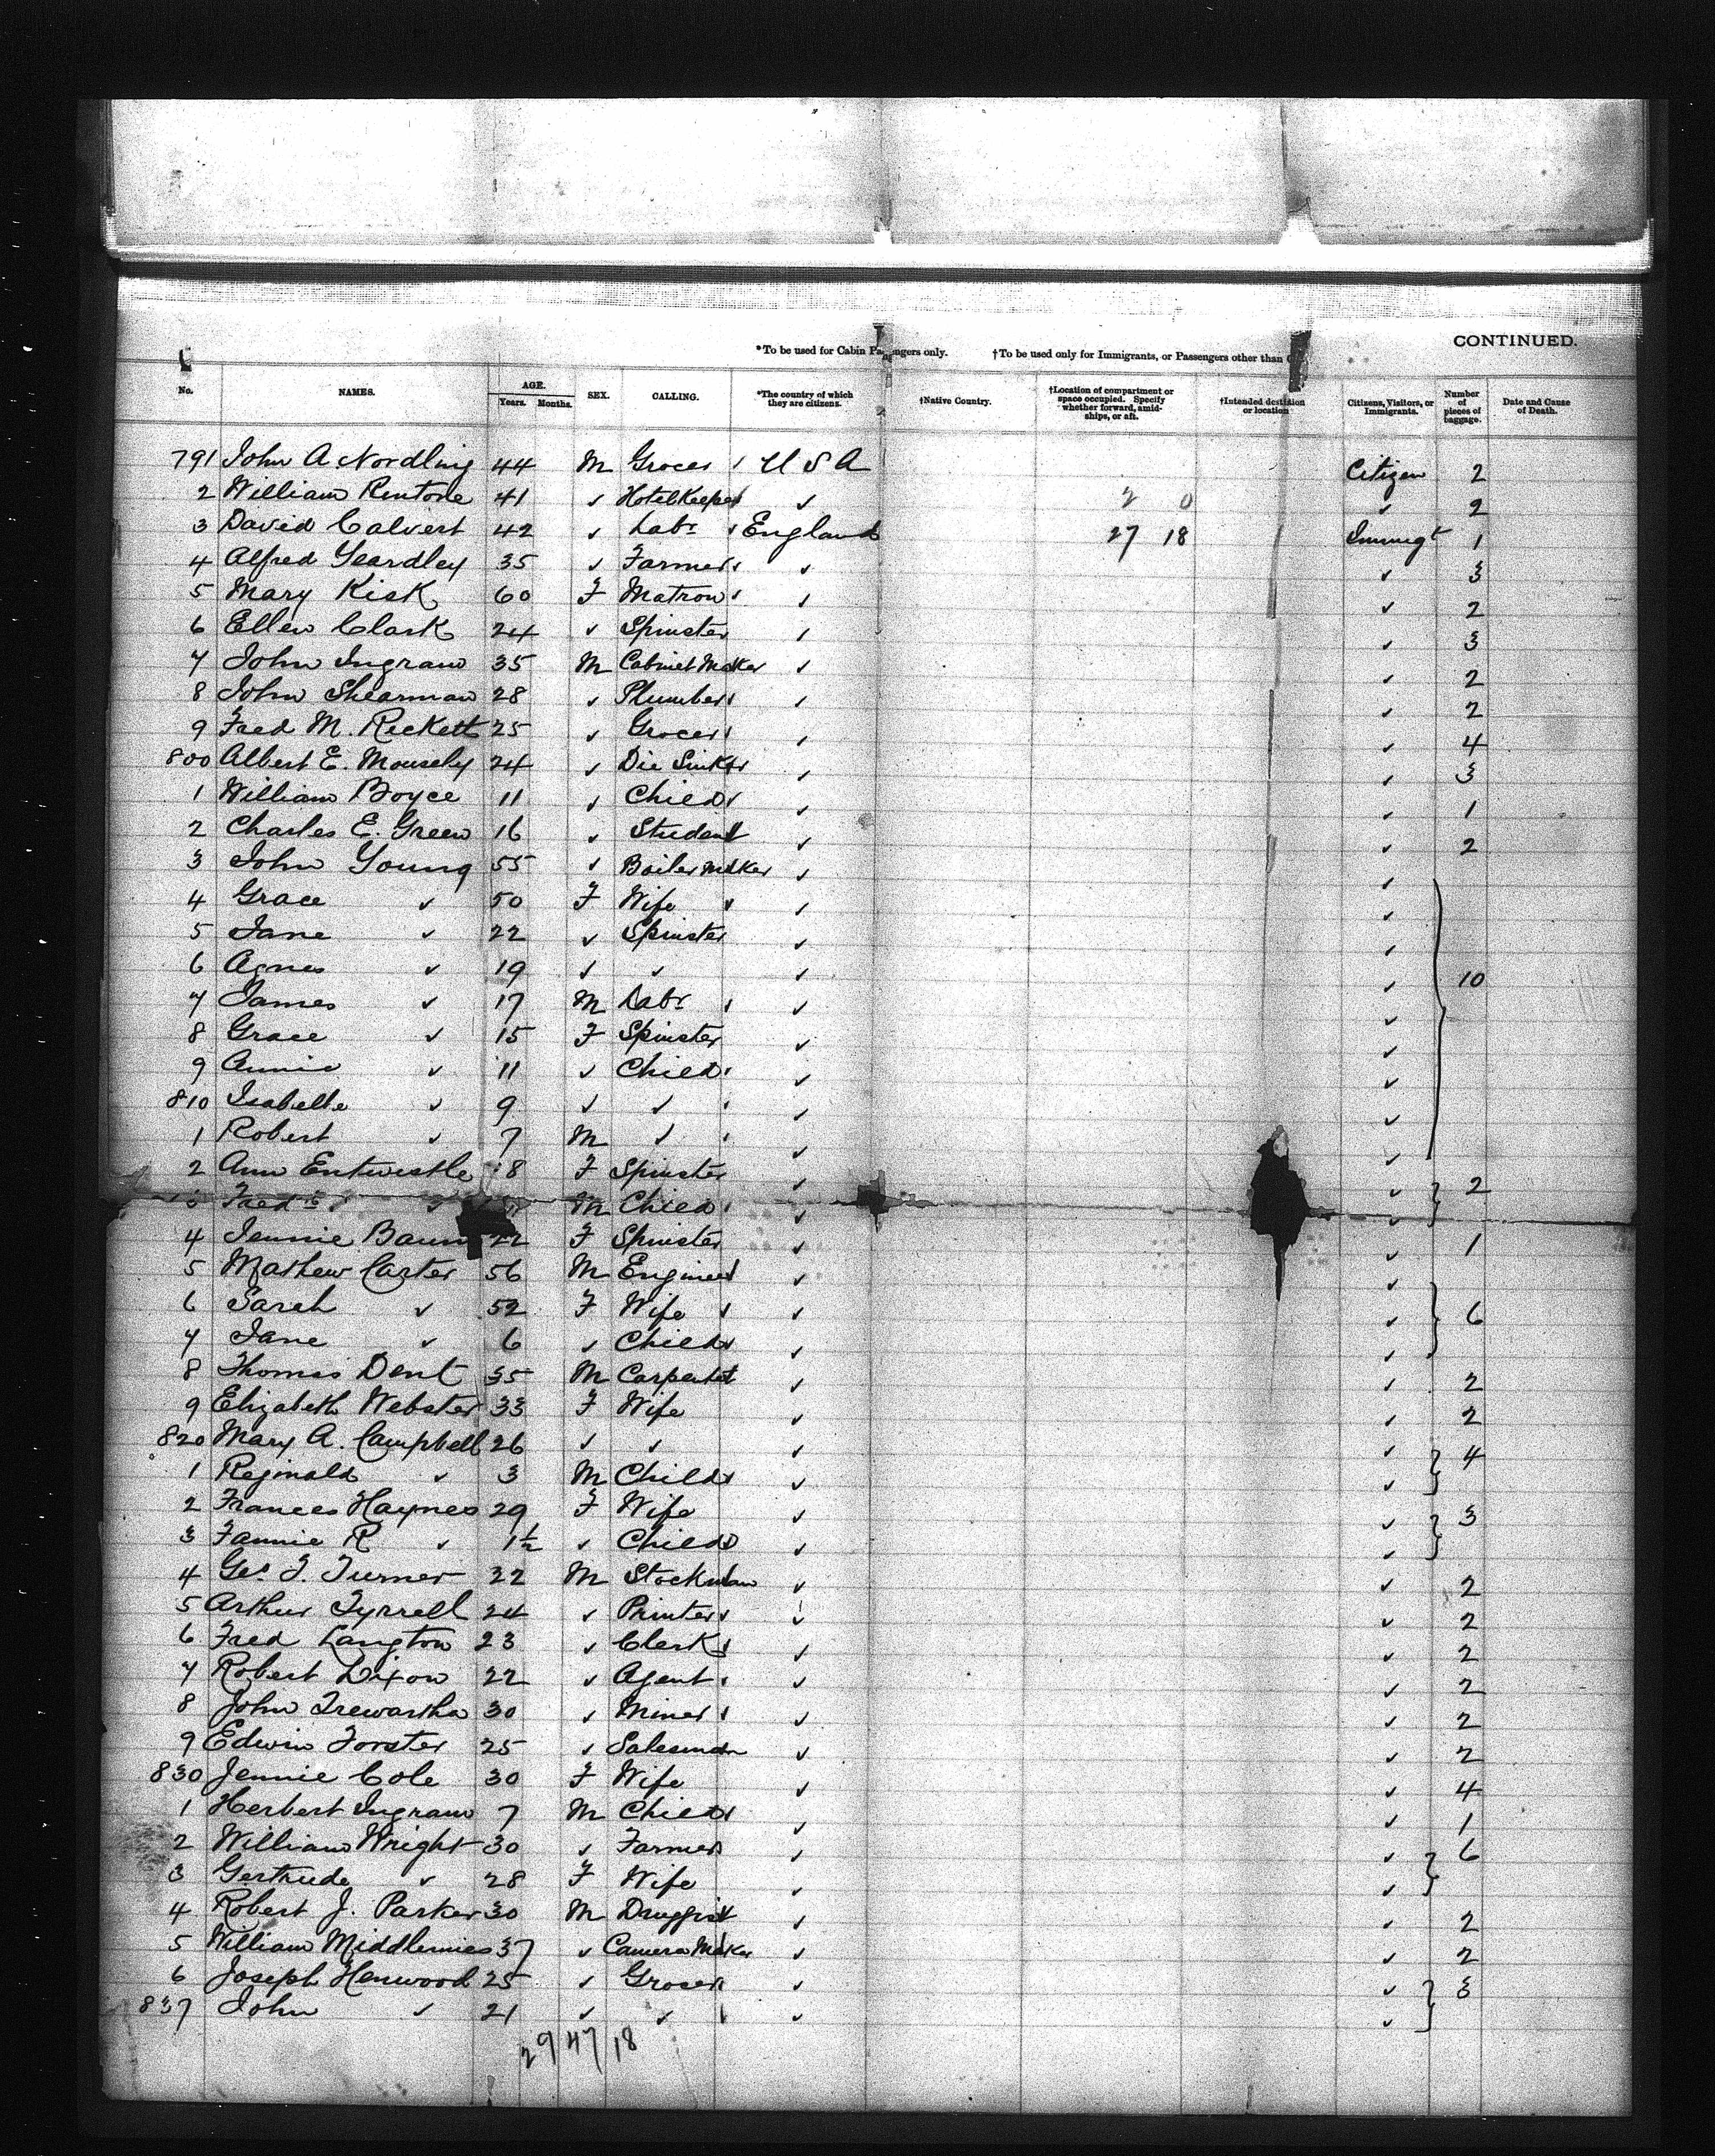 CONTINUED.
*To be used for Cabin Passengers only. †To be used only for Immigrants, or Passengers other than
No. NAMES. AGE. Years. Months. SEX. CALLING. *The country of which they are citizens. †Native Country. †Location of compartment or space occupied. Specify whether forward, amidships, or aft. †Intended destination or location Citizens, Visitors, or Immigrants. Number of pieces of baggage. Date and Cause of Death.
791 John A Nordling 44 M Grocer U S A Citizen 2
2 William Rentone 41 ✓ Hotel Keeper ✓ 2 0 ✓ 2
3 David Calvert 42 ✓ Labr England 27 18 Immigt 1
4 Alfred Yeardley 35 ✓ Farmer ✓ ✓ 3
5 Mary Kisk 60 F Matron ✓ ✓ 2
6 Ellen Clark 24 ✓ Spinster ✓ ✓ 3
7 John Ingram 35 M Cabinet Maker ✓ ✓ 2
8 John Shearman 28 ✓ Plumber ✓ ✓ 2
9 Fred M. Rickett 25 ✓ Grocer ✓ ✓ 4
800 Albert E. Mousely 24 ✓ Die Sinker ✓ ✓ 3
1 William Boyce 11 ✓ Child ✓ ✓ 1
2 Charles E. Green 16 ✓ Student ✓ ✓ 2
3 John Young 55 ✓ Boiler Maker ✓ ✓
4 Grace ✓ 50 F Wife ✓ ✓
5 Jane ✓ 22 ✓ Spinster ✓ ✓
6 Agnes ✓ 19 ✓ ✓ ✓ ✓ 10
7 James ✓ 17 M Labr ✓ ✓
8 Grace ✓ 15 F Spinster ✓ ✓
9 Annie ✓ 11 ✓ Child ✓ ✓
810 Isabella ✓ 9 ✓ ✓ ✓ ✓
1 Robert ✓ 7 M ✓ ✓ ✓
2 Ann Entwistle 18 F Spinster ✓ ✓ 2
3 Fredk ✓ M Child ✓ ✓
4 Jennie 22 F Spinster ✓ ✓ 1
5 Mathew Carter 56 M Engineer ✓ ✓
6 Sarah ✓ 52 F Wife ✓ ✓ 6
7 Jane ✓ 6 ✓ Child ✓ ✓
8 Thomas Dent 35 M Carpenter ✓ ✓ 2
9 Elizabeth Webster 33 F Wife ✓ ✓ 2
820 Mary A. Campbell 26 ✓ ✓ ✓ ✓ 4
1 Reginald ✓ 3 M Child ✓ ✓
2 Frances Haynes 29 F Wife ✓ ✓ 3
3 Fannie R ✓ 1½ ✓ Child ✓ ✓
4 Geo. T. Turner 22 M Stockman ✓ ✓ 2
5 Arthur Tyrrell 24 ✓ Printer ✓ ✓ 2
6 Fred Langton 23 ✓ Clerk ✓ ✓ 2
7 Robert Dixon 22 ✓ Agent ✓ ✓ 2
8 John Trewartha 30 ✓ Miner ✓ ✓ 2
9 Edwin Forster 25 ✓ Salesman ✓ ✓ 2
830 Jennie Cole 30 F Wife ✓ ✓ 4
1 Herbert Ingram 7 M Child ✓ ✓ 1
2 William Wright 30 ✓ Farmer ✓ ✓ 6
3 Gertrude ✓ 28 F Wife ✓ ✓
4 Robert J. Parker 30 M Druggist ✓ ✓ 2
5 William Middlemies 37 ✓ Camera Maker ✓ ✓ 2
6 Joseph Henwood 25 ✓ Grocer ✓ ✓ 3
837 John ✓ 21 ✓ ✓ ✓ ✓
29/47/18